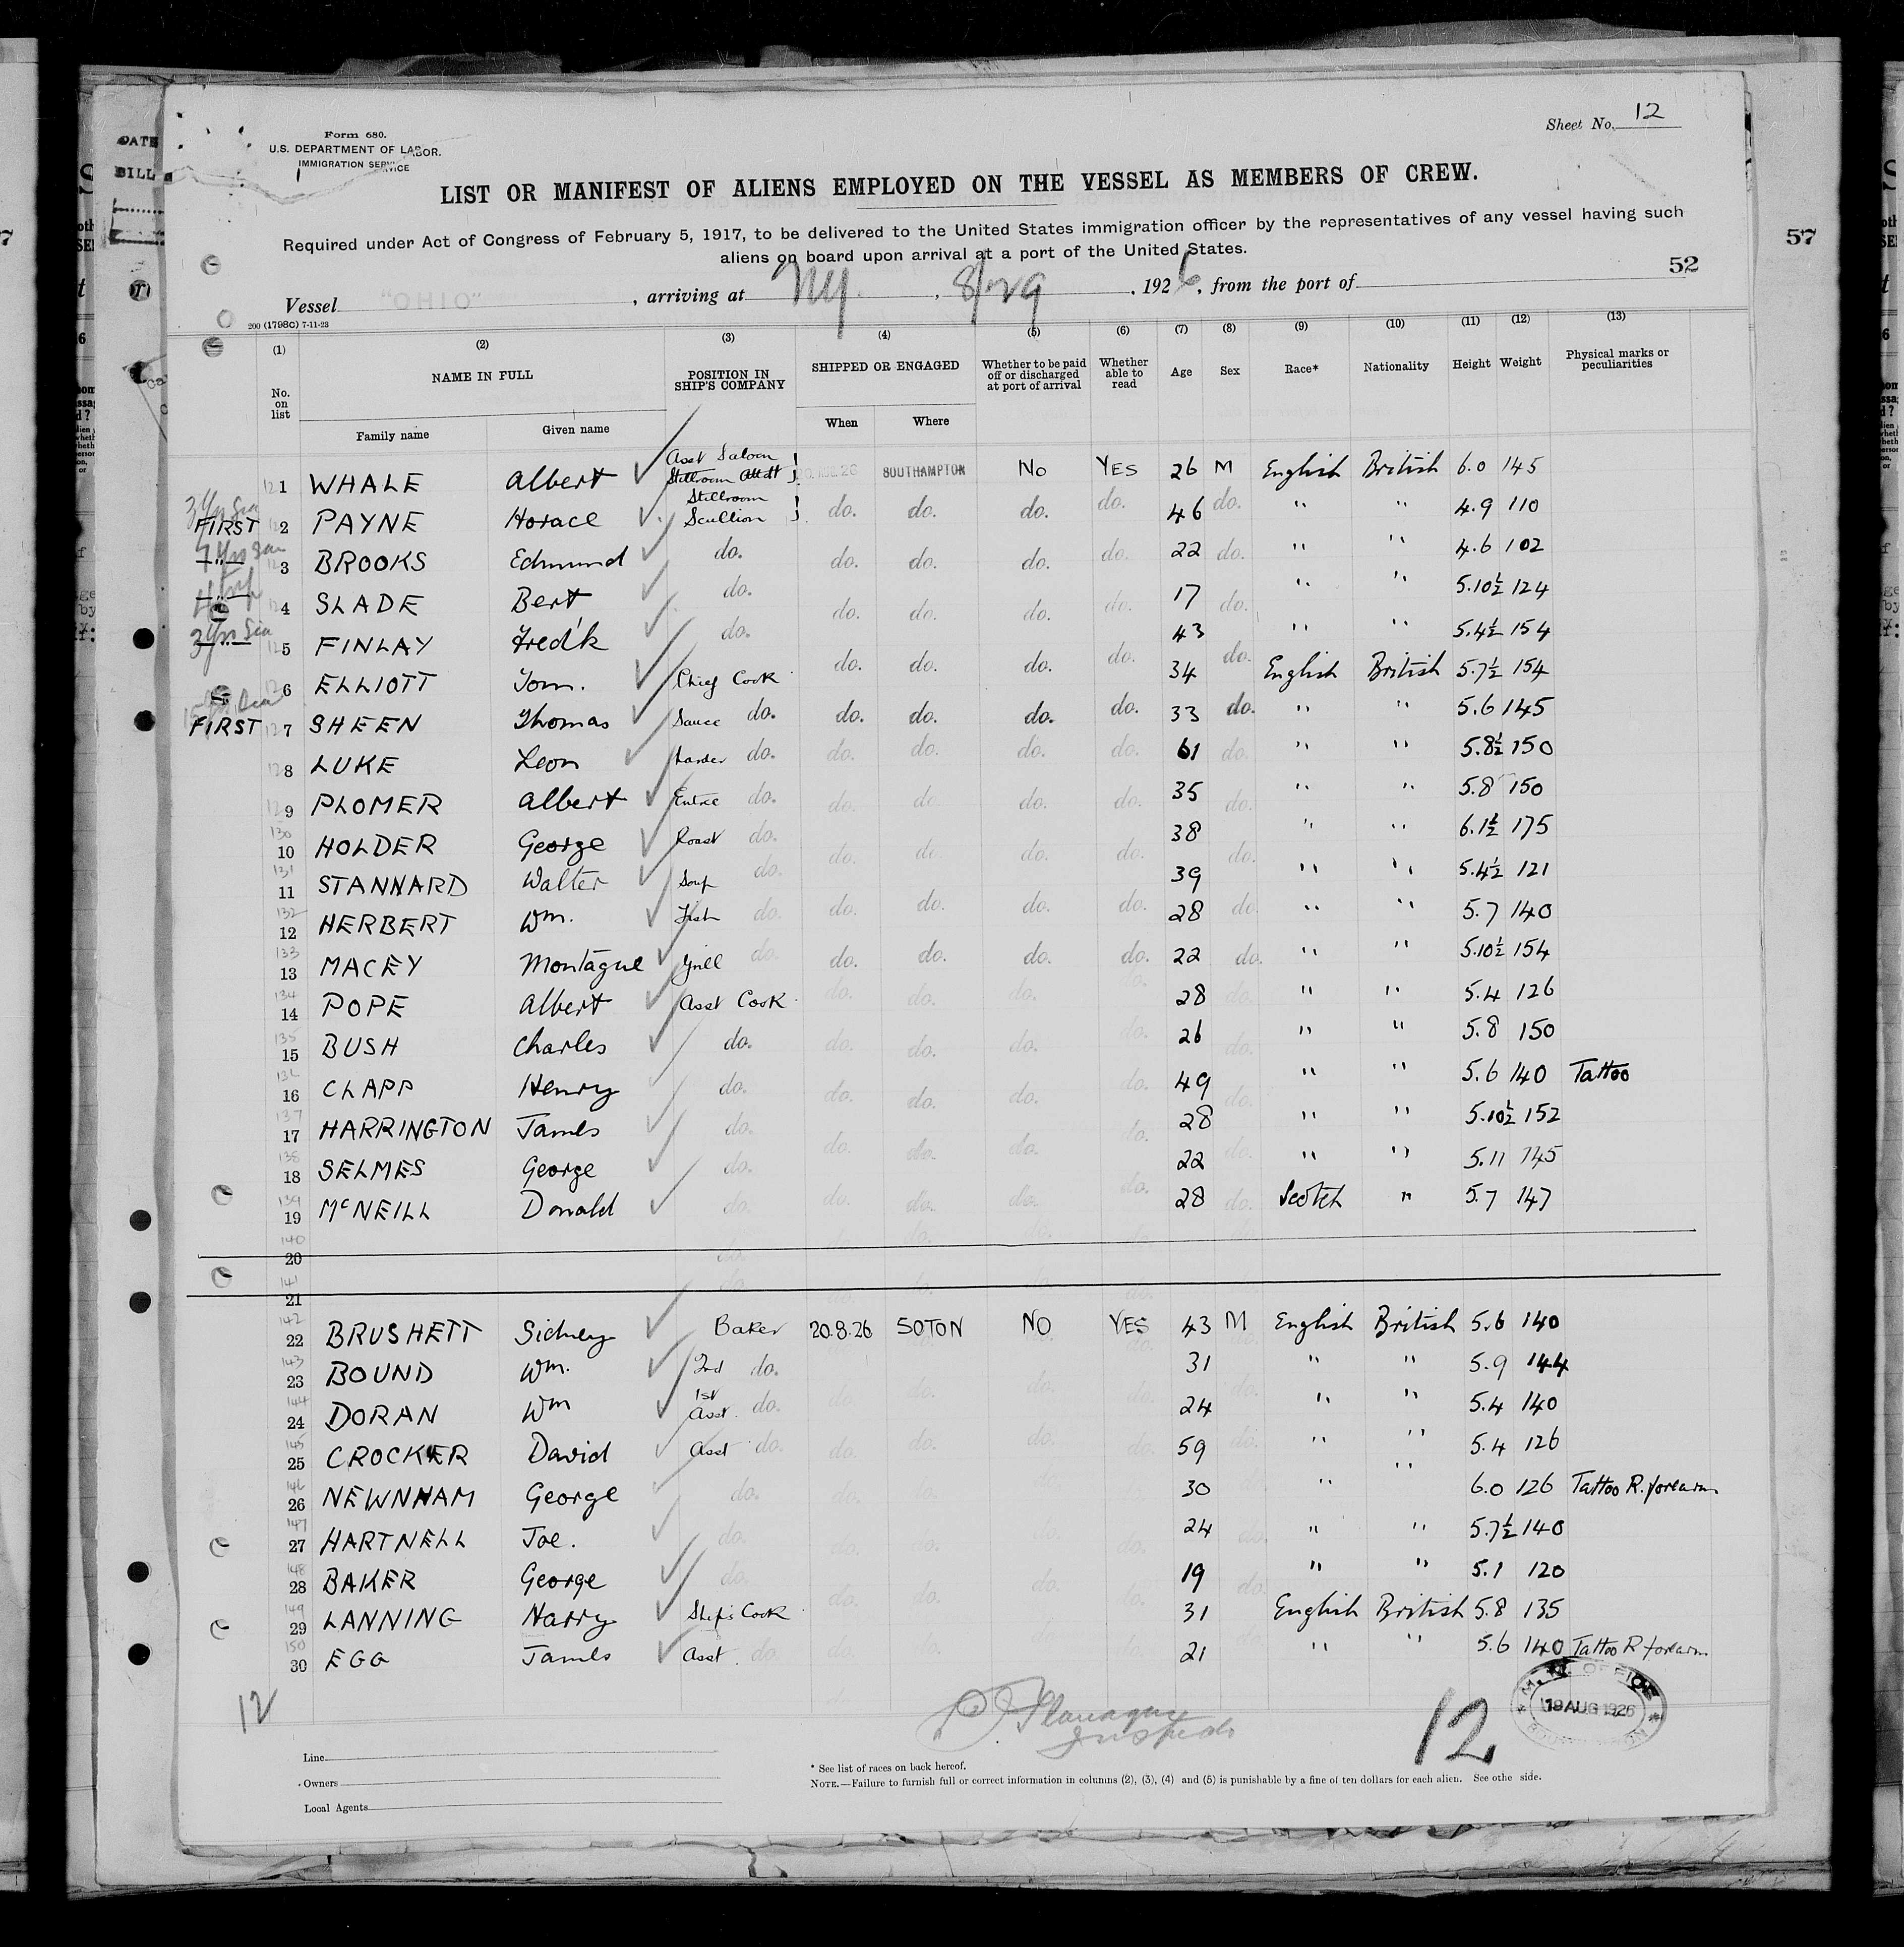 Sheet No. 12
Form 680.
U.S. DEPARTMENT OF LABOR.
IMMIGRATION SERVICE
LIST OR MANIFEST OF ALIENS EMPLOYED ON THE VESSEL AS MEMBERS OF CREW.
Required under Act of Congress of February 5, 1917, to be delivered to the United States immigration officer by the representatives of any vessel having such
aliens on board upon arrival at a port of the United States.
52
57
Vessel "OHIO", arriving at NY, 8/29, 1926, from the port of
200 (1798C) 7-11-23
(1) (2) (3) (4) (5) (6) (7) (8) (9) (10) (11) (12) (13)
No. on list NAME IN FULL POSITION IN SHIP'S COMPANY SHIPPED OR ENGAGED Whether to be paid off or discharged at port of arrival Whether able to read Age Sex Race* Nationality Height Weight Physical marks or peculiarities
Family name Given name When Where
1 WHALE Albert Asst Saloon Stillroom Attdt SOUTHAMPTON NO YES 26 M English British 6.0 145
FIRST 2 PAYNE Horace Stillroom Scullion do. do. do. do. 46 do. " " 4.9 110
3 BROOKS Edmund do. do. do. do. do. 22 do. " " 4.6 102
4 SLADE Bert do. do. do. do. do. 17 do. " " 5.10½ 124
5 FINLAY Fred'k do. 43 " " 5.4½ 154
6 ELLIOTT Tom. Chief Cook do. do. do. do. 34 do. English British 5.7½ 154
FIRST 7 SHEEN Thomas Sauce do. do. do. do. do. 33 do. " " 5.6 145
8 LUKE Leon Larder do. do. do. do. do. 61 do. " " 5.8½ 150
9 PLOMER Albert Entree do. do. do. do. do. 35 do. " " 5.8 150
10 HOLDER George Roast do. do. do. do. do. 38 do. " " 6.1½ 175
11 STANNARD Walter Soup do. 39 " " 5.4½ 121
12 HERBERT Wm. Fish do. do. do. do. do. 28 do. " " 5.7 140
13 MACEY Montague Grill do. do. do. do. do. 22 do. " " 5.10½ 154
14 POPE Albert Asst Cook do. do. do. do. 28 do. " " 5.4 126
15 BUSH Charles do. do. do. do. do. 26 do. " " 5.8 150
16 CLAPP Henry do. do. do. do. do. 49 do. " " 5.6 140 Tattoo
17 HARRINGTON James do. 28 " " 5.10½ 152
18 SELMES George do. do. do. do. do. 22 do. " " 5.11 145
19 McNEILL Donald do. do. do. do. do. 28 do. Scotch " 5.7 147
20
21
22 BRUSHETT Sidney Baker 20.8.26 SOTON NO YES 43 M English British 5.6 140
23 BOUND Wm. 2nd do. 31 " " 5.9 144
24 DORAN Wm 1st Asst. do. do. do. do. do. 24 do. " " 5.4 140
25 CROCKER David Asst do. do. do. do. do. 59 do. " " 5.4 126
26 NEWNHAM George do. do. do. do. 30 " " 6.0 126 Tattoo R. forearm
27 HARTNELL Joe. do. do. do. do. 24 do. " " 5.7½ 140
28 BAKER George do. do. do. do. do. 19 do. " " 5.1 120
29 LANNING Harry Ship's Cook 31 English British 5.8 135
30 EGG James Asst. do. 21 " " 5.6 140 Tattoo R forearm
12
12
19 AUG 1926
Line
Owners
Local Agents
* See list of races on back hereof.
NOTE.—Failure to furnish full or correct information in columns (2), (3), (4) and (5) is punishable by a fine of ten dollars for each alien. See othe side.